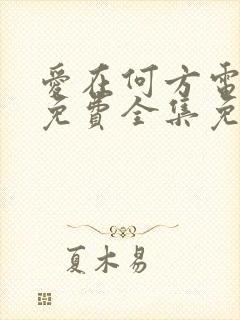 愛在何方電
免費全集免
夏木易